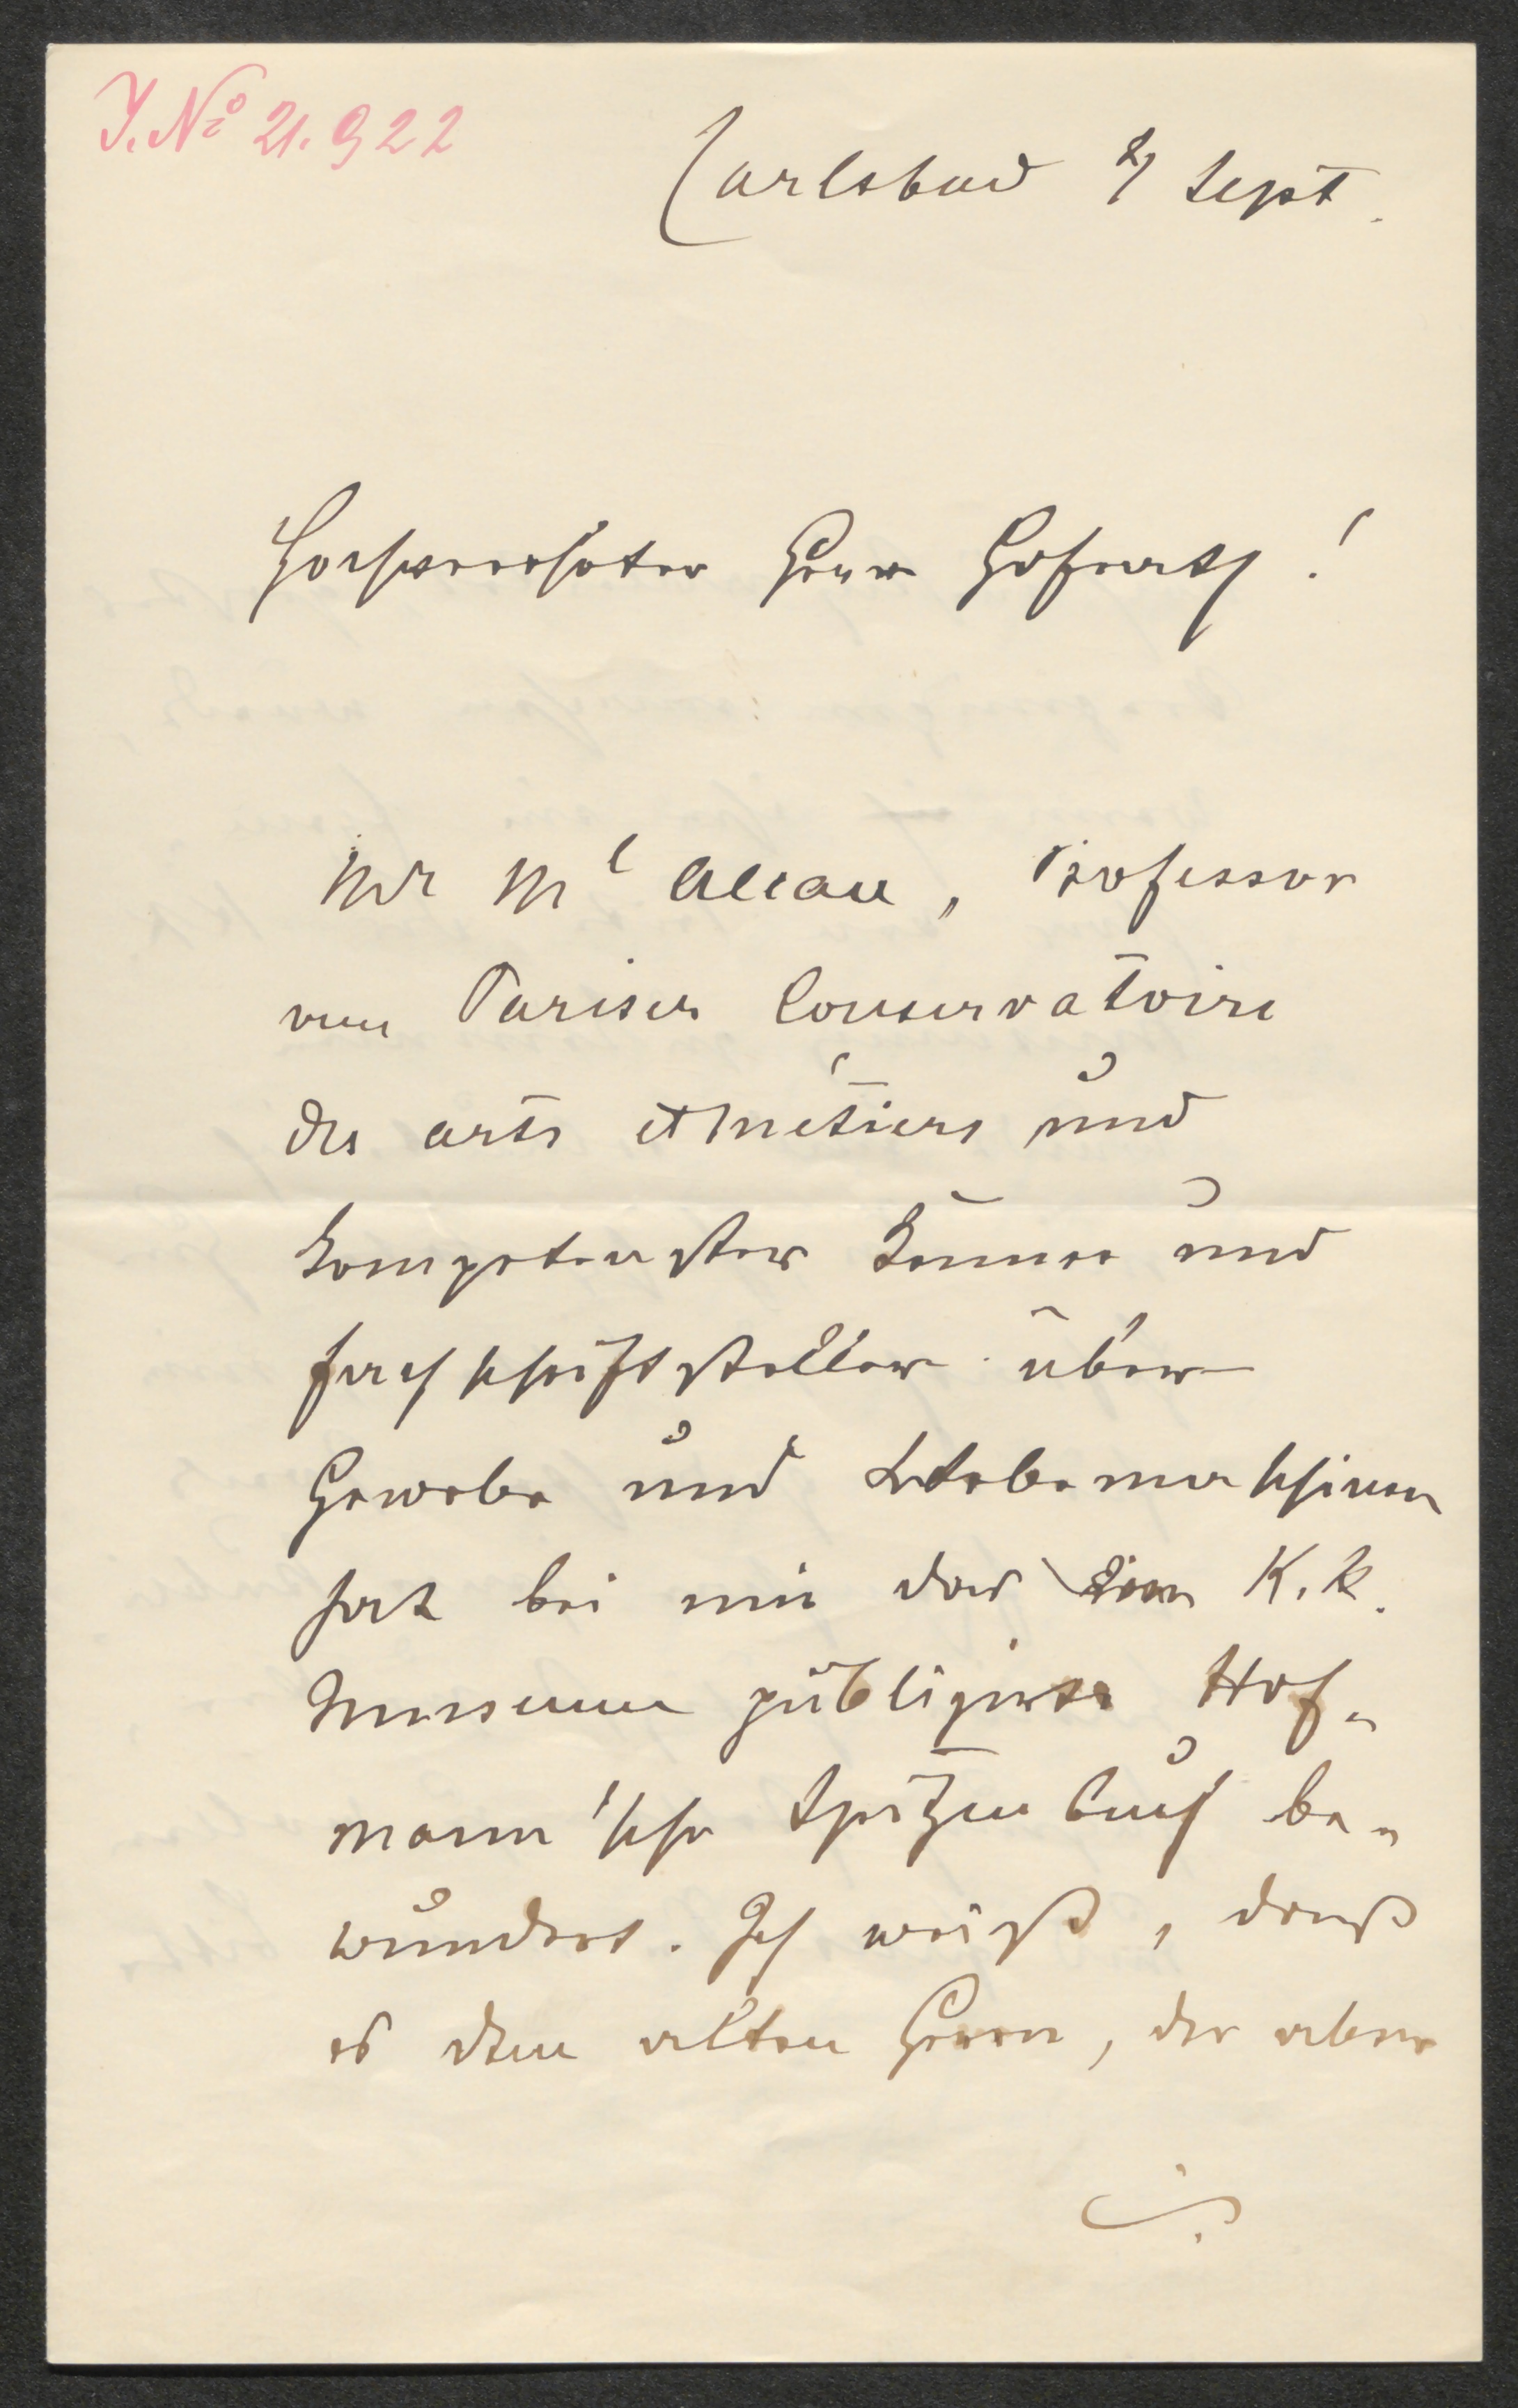 J. No 21.922
Carlsbad 2/ Sept.
Hochverehrter Herr Hofrath!
Mr Ml Alcan, Professor
vom Pariser Conservatoire
des arts et métiers und
kompetenster Kenner und
Fachschriftsteller über
Gewebe und Webemaschinen
hat bei mir das vom K. k.
Museum publizirte Hof-
mann'sche Spitzenbuch be-
wundert. Ich weiß, daß
es dem alten Herrn, der aber